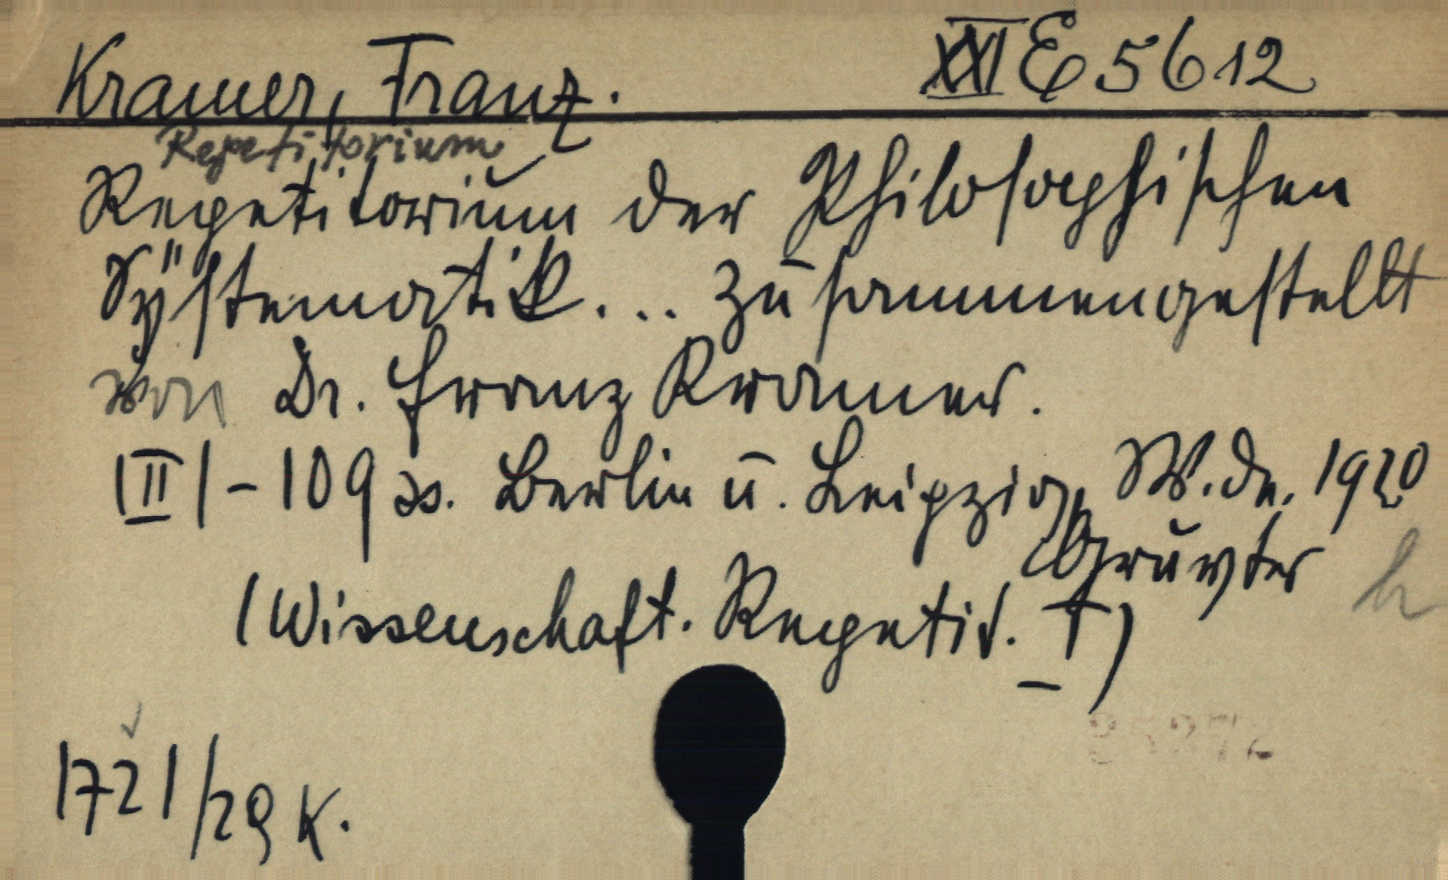 Kramer, Franz.
XXI E 5612
Repetitorium
Repetitorium der Philosophischen
Systematik ... zusammengestellt
von Dr. Franz Kramer.
|II| - 109 ss. Berlin u. Leipzig, W. de. 1920
Gruyter
h
(Wissenschaft. Repetit. I)
1721/29 K.